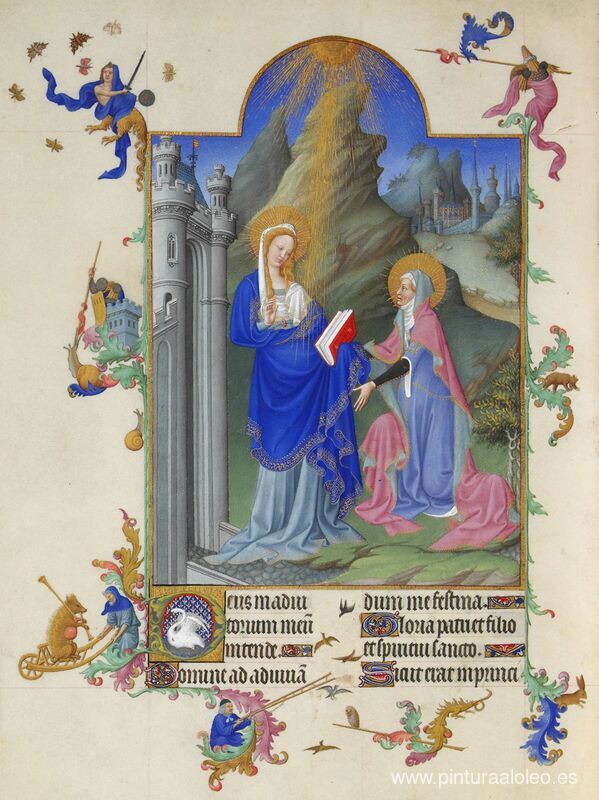 Deus in adiu
torium meū
intende.
Domine ad adiuuā
dum me festina.
Gloria patri et filio
et spiritui sancto.
Sicut erat in princi
www.pinturaaloleo.es